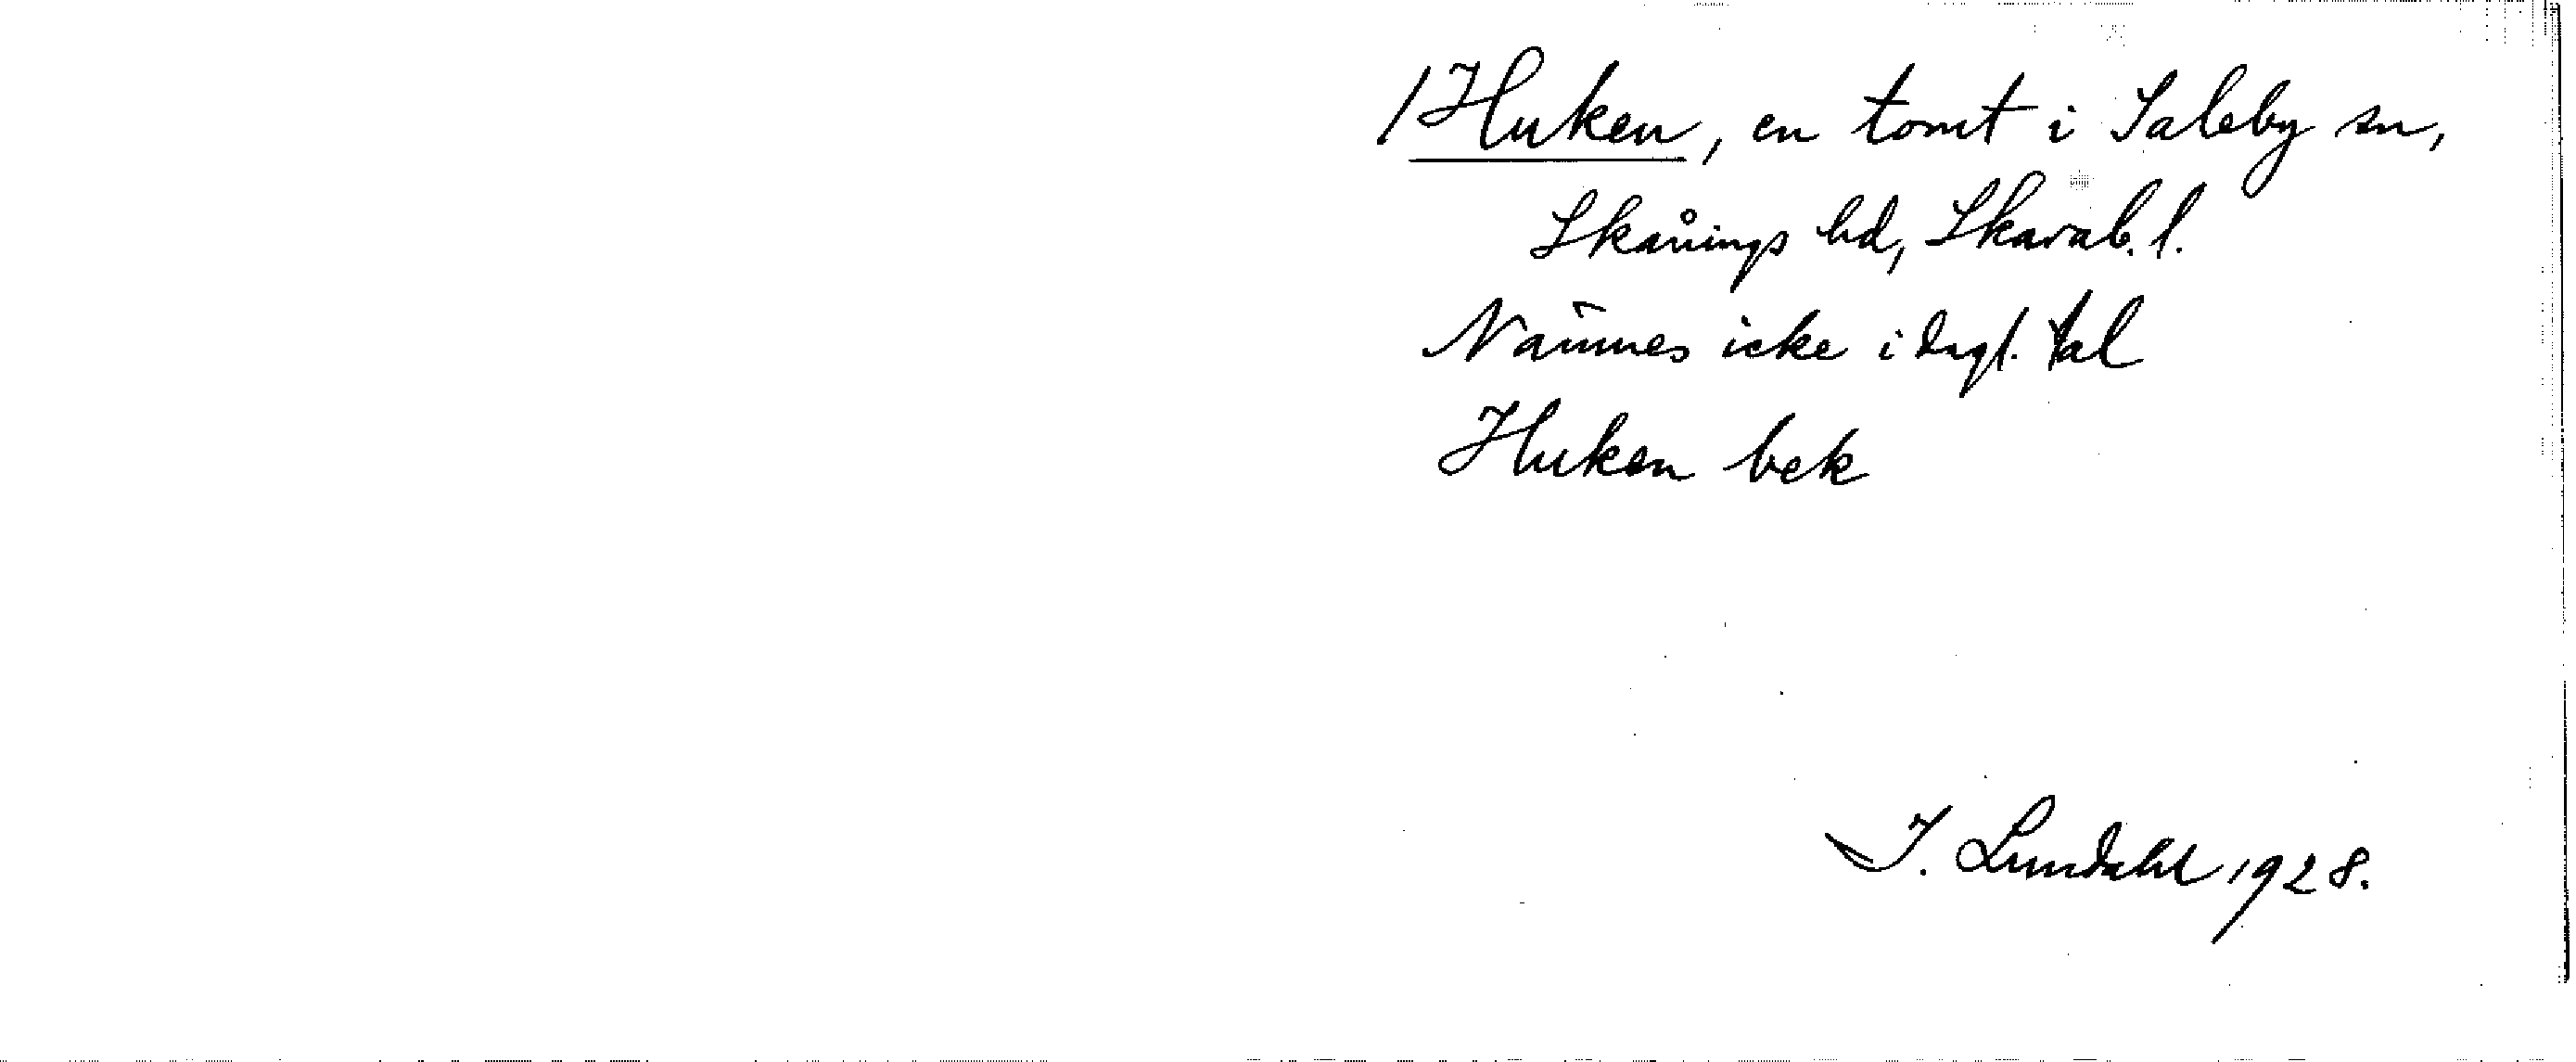 /Huken, en tomt i Saleby sn,
Skånings hd, Skarab. l.
Nämnes icke i dagl. tal
Huken bek
I. Lundahl 1928.